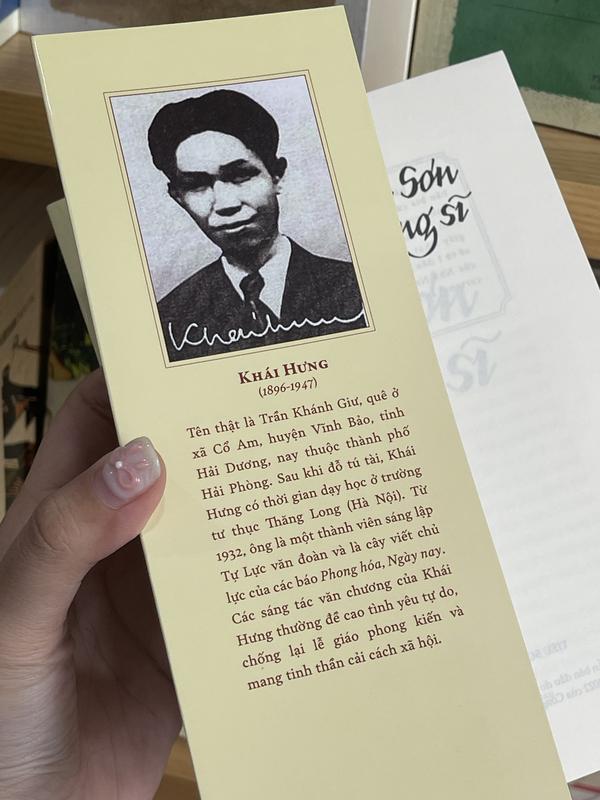 Khaihưng
KHÁI HƯNG
(1896-1947)
Tên thật là Trần Khánh Giư, quê ở
xã Cổ Am, huyện Vĩnh Bảo, tỉnh
Hải Dương, nay thuộc thành phố
Hải Phòng. Sau khi đỗ tú tài, Khái
Hưng có thời gian dạy học ở trường
tư thục Thăng Long (Hà Nội). Từ
1932, ông là một thành viên sáng lập
Tự Lực văn đoàn và là cây viết chủ
lực của các báo Phong hóa, Ngày nay.
Các sáng tác văn chương của Khái
Hưng thường đề cao tình yêu tự do,
chống lại lễ giáo phong kiến và
mang tinh thần cải cách xã hội.
Sơn
sĩ